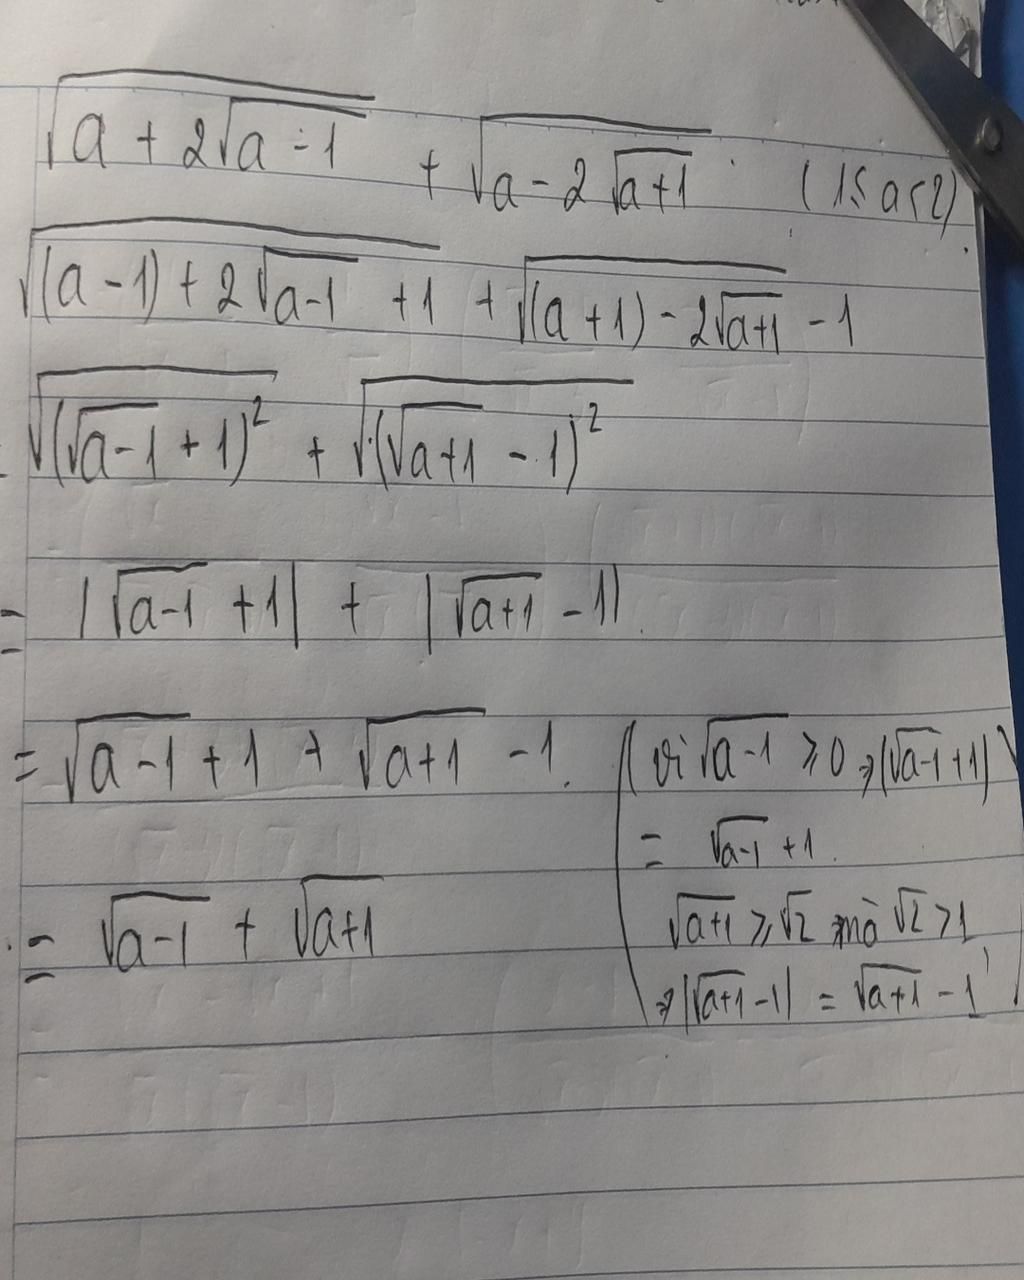 √(a + 2√(a - 1)) + √(a - 2√(a+1)) (1 ≤ a < 2)
√((a - 1) + 2√(a-1) + 1) + √((a + 1) - 2√(a+1)) - 1
√((√(a-1) + 1)²) + √((√(a+1) - 1)²)
= |√(a-1) + 1| + |√(a+1) - 1|
= √(a-1) + 1 + √(a+1) - 1.
= √(a-1) + √(a+1)
(vì √(a-1) ≥ 0 ⇒ |√(a-1) + 1|
= √(a-1) + 1.
√(a+1) ≥ √2 mà √2 > 1
⇒ |√(a+1) - 1| = √(a+1) - 1)